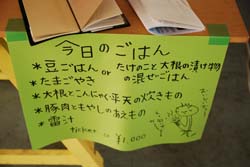 今日のごはん
*豆ごはん or たけのこと大根の漬け物の混ぜごはん
*たまごやき
*大根とこんにゃく平天の炊きもの
*豚肉ともやしのあえもの
*雷汁
ticket or ¥1,000